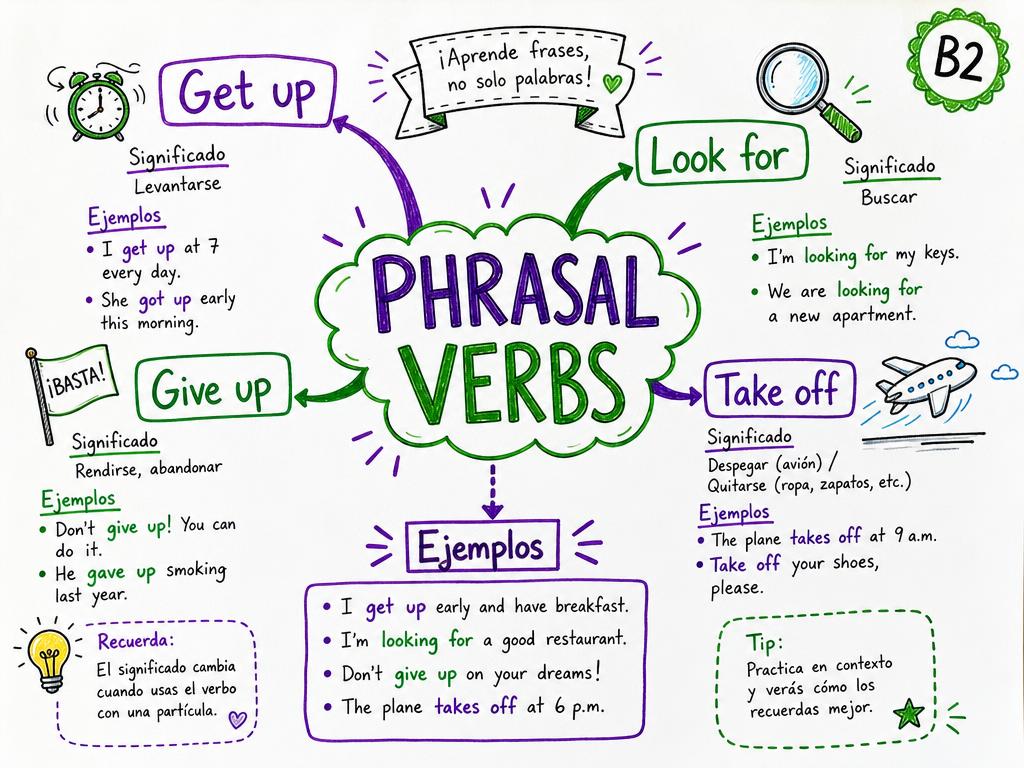 ¡Aprende frases,
no solo palabras!
B2
PHRASAL
VERBS
Get up
Significado
Levantarse
Ejemplos
• I get up at 7
every day.
• She got up early
this morning.
Look for
Significado
Buscar
Ejemplos
• I'm looking for my keys.
• We are looking for
a new apartment.
¡BASTA!
Give up
Significado
Rendirse, abandonar
Ejemplos
• Don't give up! You can
do it.
• He gave up smoking
last year.
Take off
Significado
Despegar (avión) /
Quitarse (ropa, zapatos, etc.)
Ejemplos
• The plane takes off at 9 a.m.
• Take off your shoes,
please.
Ejemplos
• I get up early and have breakfast.
• I'm looking for a good restaurant.
• Don't give up on your dreams!
• The plane takes off at 6 p.m.
Recuerda:
El significado cambia
cuando usas el verbo
con una partícula.
Tip:
Practica en contexto
y verás cómo los
recuerdas mejor.